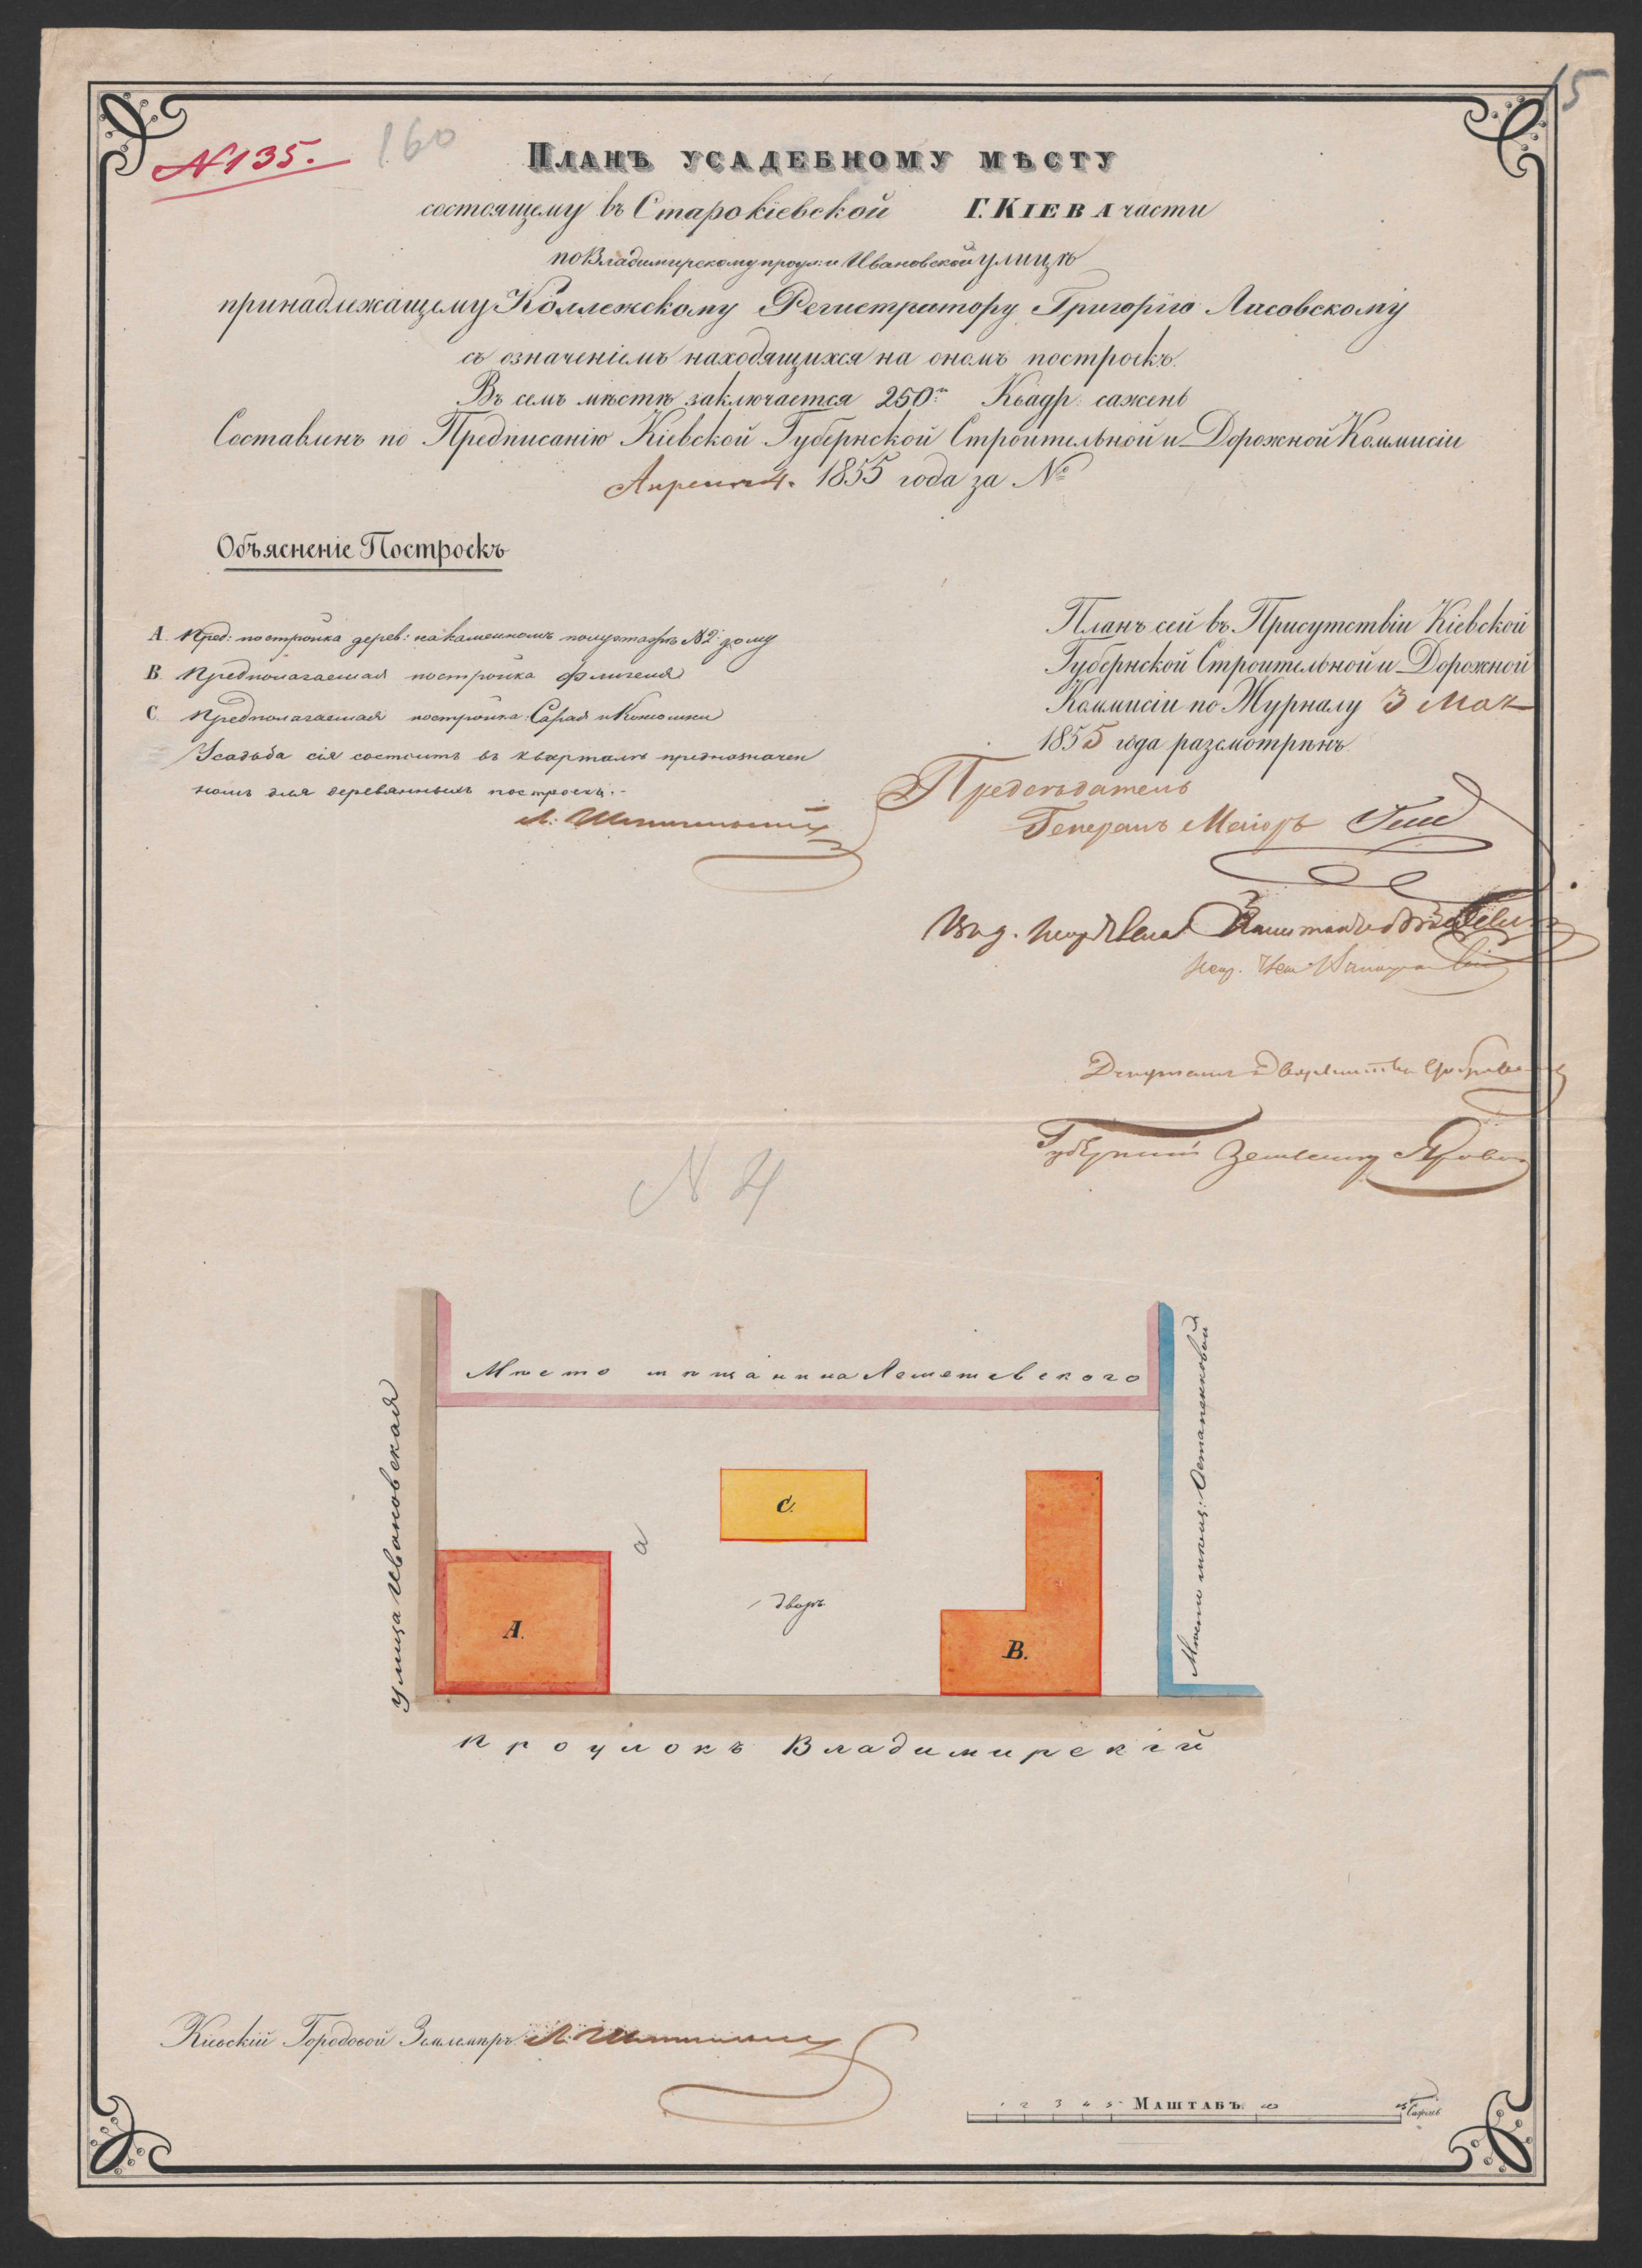 15
N 135.
160
Планъ усадебному мѣсту
состоящему въ Старокіевской Г. Кіева части
по Владимирскому проул: и Ивановской улицѣ
принадлежащему Коллежскому Регистратору Григорію Лисовскому
съ означеніемъ находящихся на ономъ построекъ.
Въ семъ мѣстѣ заключается 250: Квадр: сажень
Составленъ по Предписанію Кіевской Губернской Строительной и Дорожной Коммисіи
Апреля 4. 1855 года за №
Объясненіе Построекъ
A. Пред: постройка дерев: на каменномъ полуэтажѣ №2: дому
B. Предполагаемая постройка флигеля
C. Предполагаемая постройка: Сарая и Конюшни
Усадьба сія состоитъ въ кварталѣ предназначен
номъ для деревянныхъ построекъ.-
Планъ сей въ Присутствіи Кіевской
Губернской Строительной и Дорожной
Коммисіи по Журналу 3 Мая
1855 года разсмотрѣнъ.
Председатель
Генералъ Маіоръ
Депутатъ Дворянства
Губернский Землемер
N 4
Место мещанина
улица Ивановская
Место мещ:
C.
a
дворъ
A.
B.
проулокъ Владимирскій
Кіевскій Городовой Землемѣръ
1 2 3 4 5 Маштабъ: 10 15 Сажень